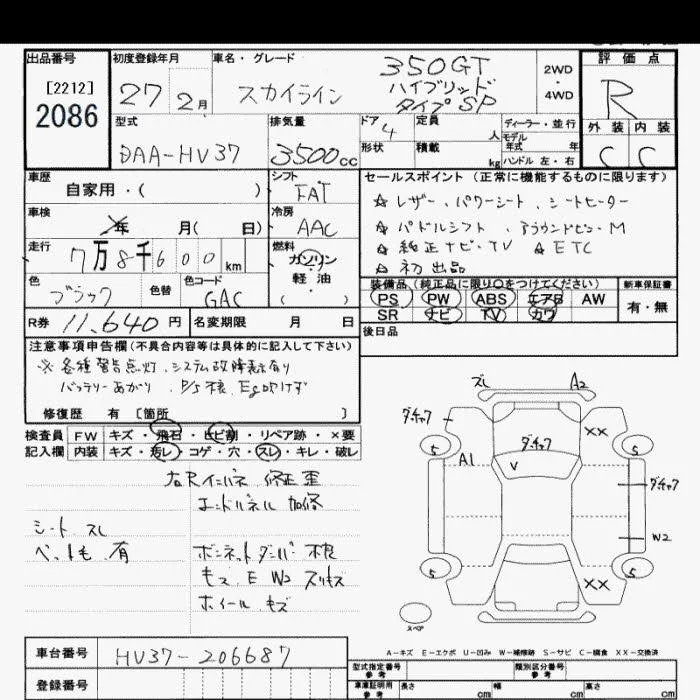 出品番号
[2212]
2086
初度登録年月
27 2月
車名・グレード
スカイライン
350GT
ハイブリッド
タイプSP
2WD
4WD
評価点
R
外装 内装
C C
型式
DAA-HV37
排気量
3500cc
ドア 4
形状
定員 人
積載 kg
ディーラー・並行
モデル
年式 年
ハンドル 左・右
車歴
自家用・( )
シフト
FAT
車検
年 月( 日)
冷房
AAC
走行
7万8千600km
燃料
ガソリン
軽油
( )
色
ブラック
色替
色コード
GAC
R券 11,640円
名変期限 月 日
セールスポイント(正常に機能するものに限ります)
☆レザー、パワーシート、シートヒーター
☆パドルシフト、アラウンドビュ-M
☆純正ナビ・TV ☆ETC
☆初出品
装備品(純正品に限り〇をつけてください)
PS PW ABS エアB AW
SR ナビ TV カワ
新車保証書
有・無
後日品
注意事項申告欄(不具合内容等は具体的に記入して下さい)
※各種警告点灯、システム故障表示有り
バッテリーあがり、P/S不良、Eg吹けず
修復歴 有 [箇所 ]
検査員 FW キズ・飛石・ヒビ割・リペア跡・×要
記入欄 内装 キズ・汚レ・コゲ・穴・スレ・キレ・破レ
右Rインパネ 修正歪
エンドパネル 加修
シート スレ
ペット毛 有
ボンネットダンパー 不良
キズ E W2 スリキズ
ホイール キズ
スレ
A2
ダ・チャク7
××
5
5
ダ・チャク7
A1
V
ダ・チャク7
W2
5
××
5
スペア
A-キズ E-エクボ U-凹み W-補修跡 S-サビ C-腐食 XX-交換済
車台番号
HV37-206687
登録番号
型式指定番号
参考
類別区分番号
参考
車庫証明用
参考
長さ cm
幅 cm
高さ cm